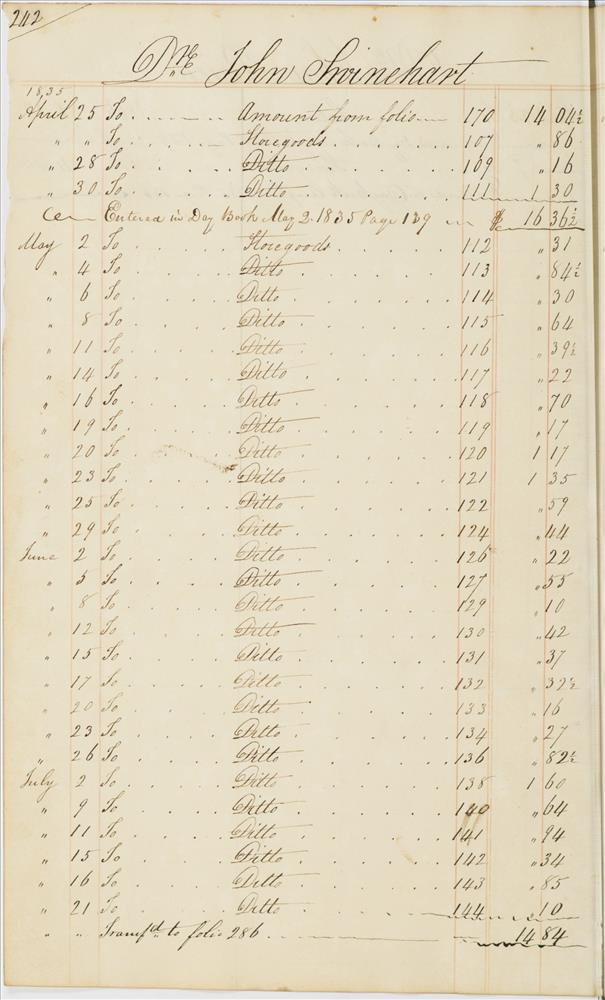 242
Dr John Swinehart
1835
April 25 To Amount from folio 170 14 04½
" " To Storegoods 107 " 86
" 28 To Ditto 109 " 16
" 30 To Ditto 111 1 30
Entered in Day Book May 2. 1835 Page 139 $ 16 36½
May 2 To Storegoods 112 " 31
" 4 To Ditto 113 " 84½
" 6 To Ditto 114 " 30
" 8 To Ditto 115 " 64
" 11 To Ditto 116 " 39½
" 14 To Ditto 117 " 22
" 16 To Ditto 118 " 70
" 19 To Ditto 119 " 17
" 20 To Ditto 120 1 17
" 23 To Ditto 121 1 35
" 25 To Ditto 122 " 59
" 29 To Ditto 124 " 44
June 2 To Ditto 126 " 22
" 5 To Ditto 127 " 55
" 8 To Ditto 129 " 10
" 12 To Ditto 130 " 42
" 15 To Ditto 131 " 37
" 17 To Ditto 132 " 39½
" 20 To Ditto 133 " 16
" 23 To Ditto 134 " 27
" 26 To Ditto 136 " 82½
July 2 To Ditto 138 1 60
" 9 To Ditto 140 " 64
" 11 To Ditto 141 " 94
" 15 To Ditto 142 " 34
" 16 To Ditto 143 " 85
" 21 To Ditto 144 " 10
" " Transfd to folio 286 14 84